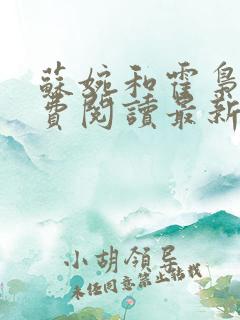 蘇婉和霍梟
費閱讀最新
小胡領呈
未经同意禁止转载